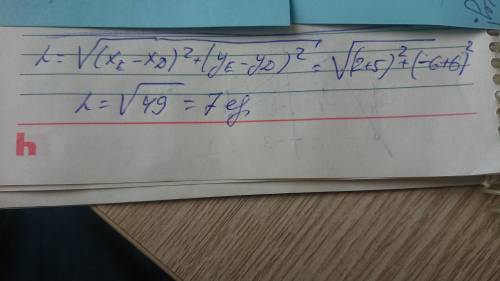 λ=√(x_E-x_D)²+(y_E-y_D)² = √(2+5)²+(-6+6)²
λ=√49 = 7 ед.
h